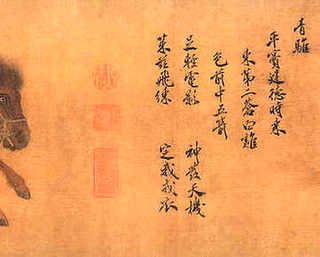 青騅
平竇建德時乘
東第二蒼白雜
色前中五箭
足輕電影 神發天機
策茲飛練 定我戎衣